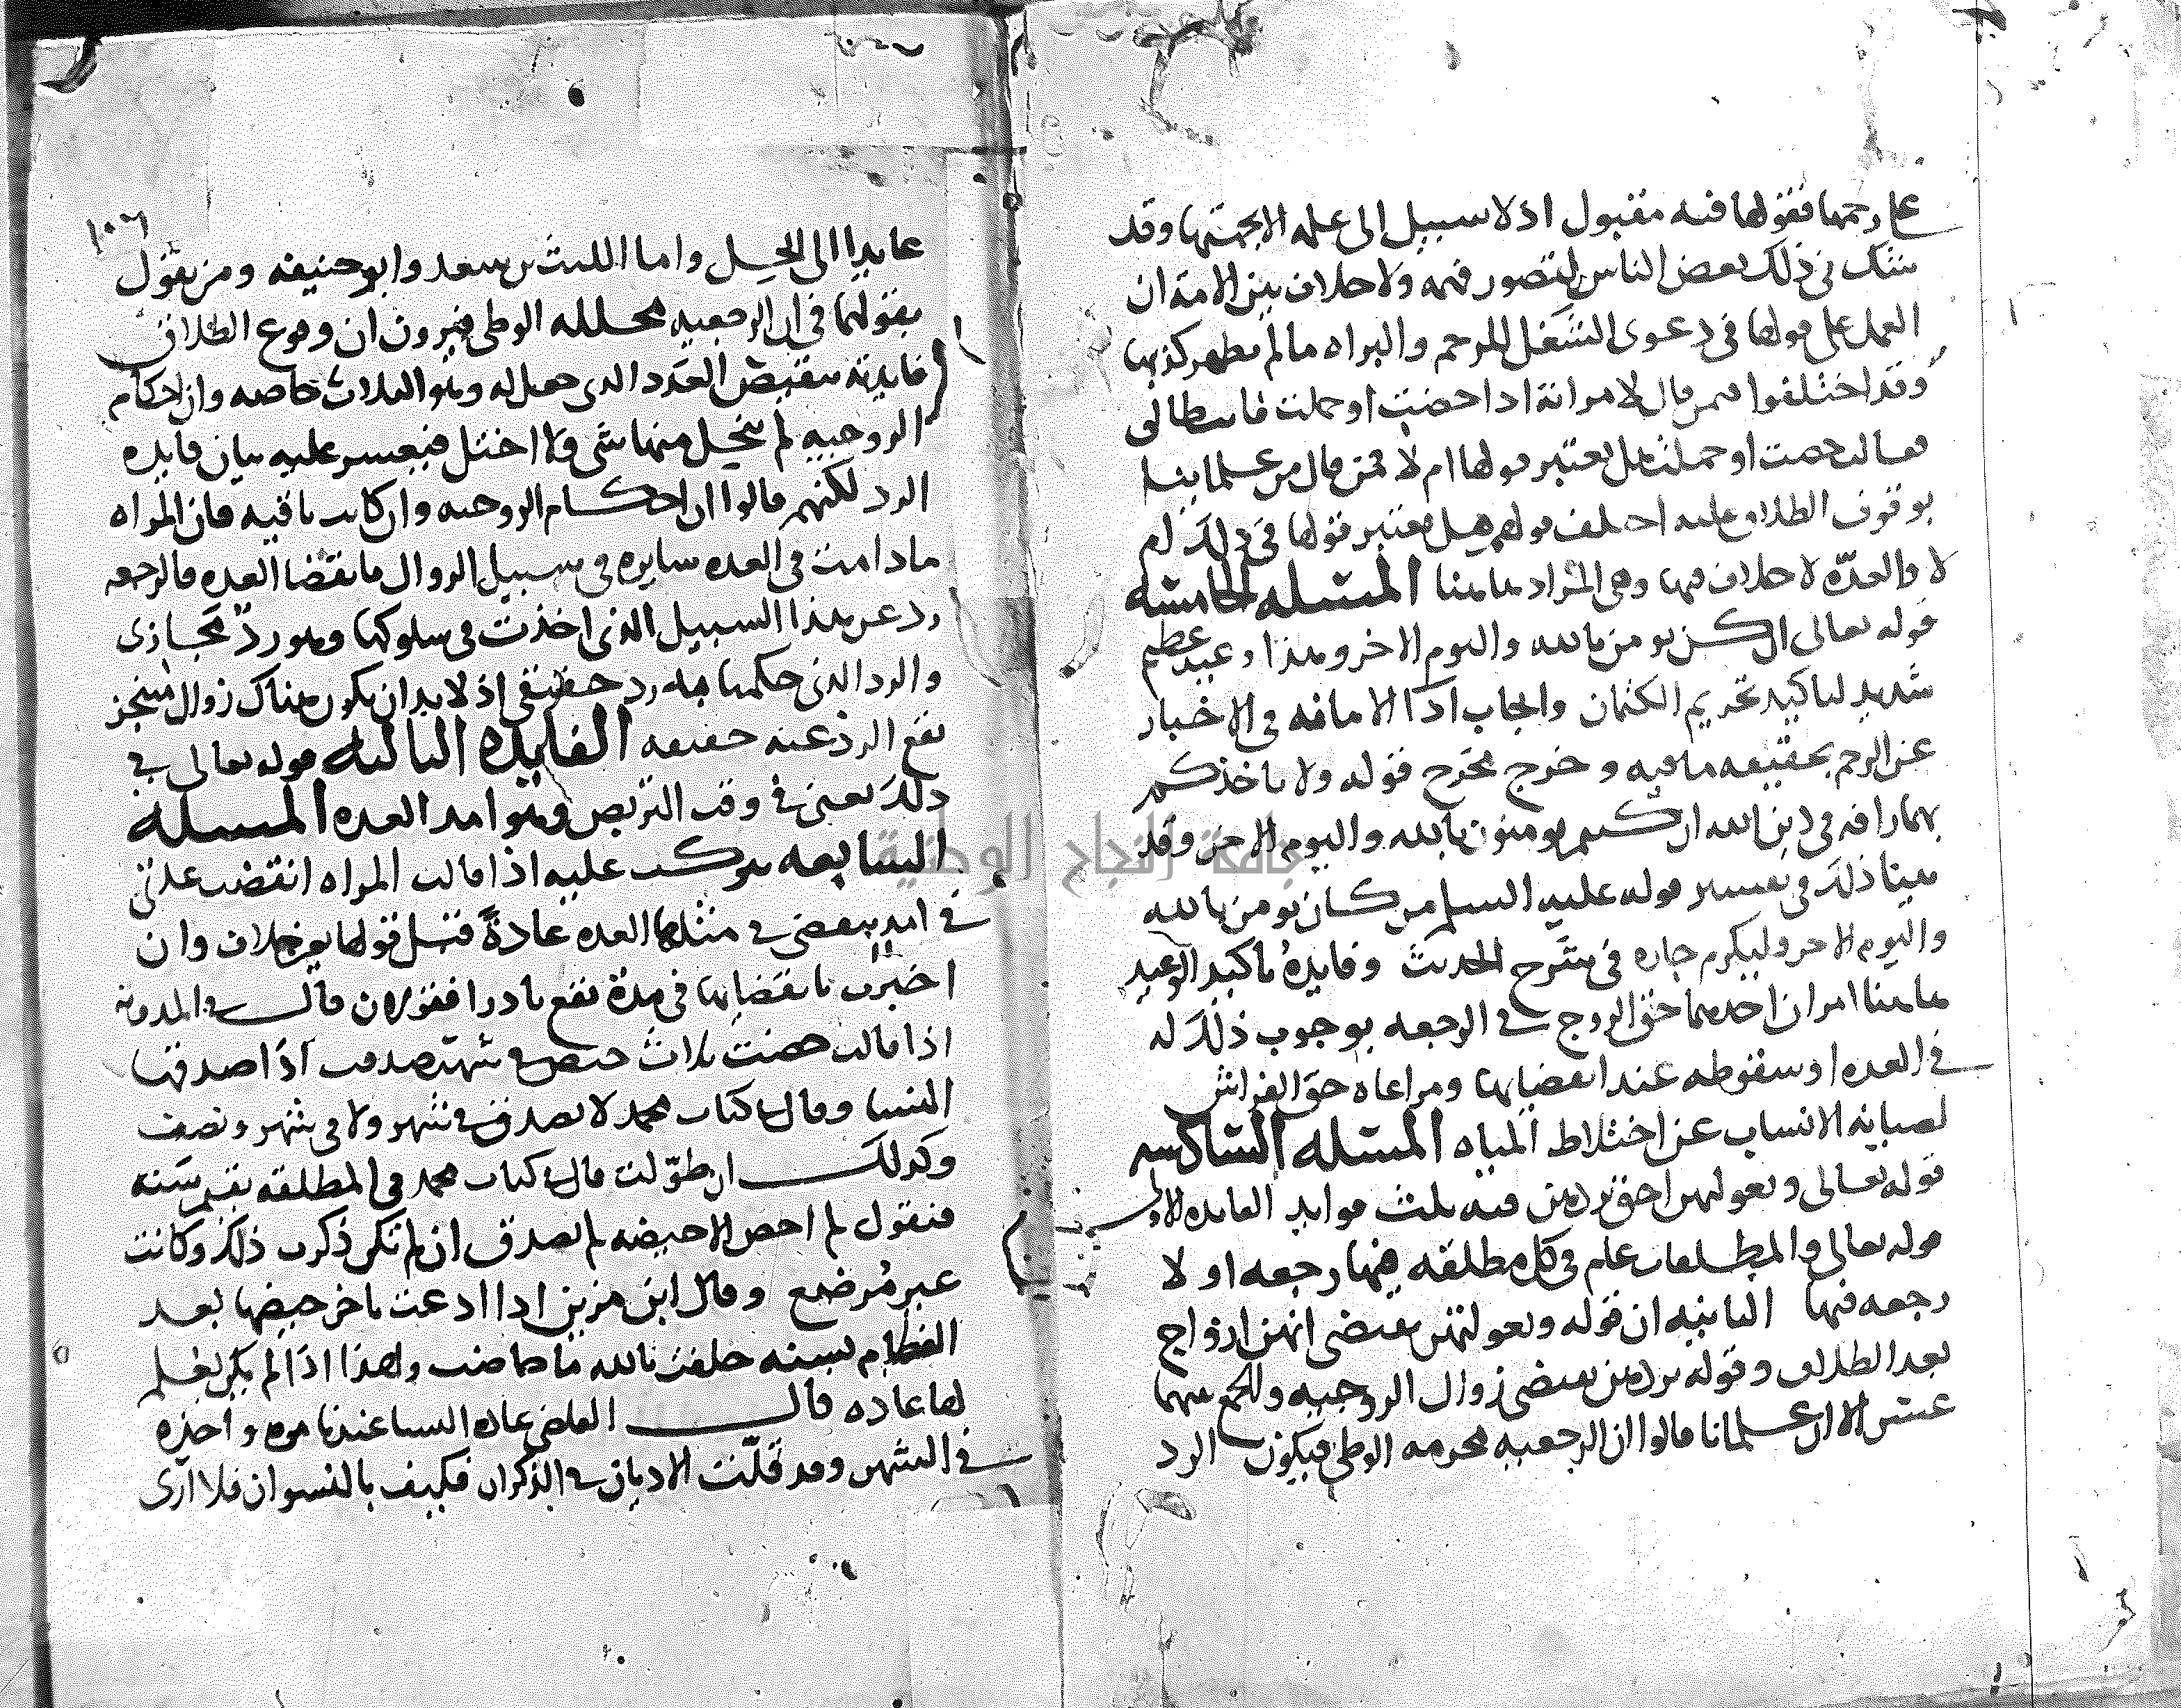 على رحمها فقولها فيه مقبول اذ لا سبيل الى علمه الا بجهتها وقد
شك في ذلك بعض الناس لتصور فهمه ولا خلاف بين الامة ان
العمل على قولها في دعوى الشغل للرحم والبراه ما لم يظهر كذبها
وقد اختلفوا فيمن قال لامراته اذا حضت او حملت فانت طالق
فقالت حضت او حملت هل يعتبر قولها ام لا فمن قال من علماينا
بوقوف الطلاق عليه اختلف قولهم هل يعتبر قولها في ذلك ام
لا والعدة لا خلاف فيها وهي المراد هاهنا المسئله الخامسه
قوله تعالى ان كن يومن بالله واليوم الاخر وهذا وعيد عظيم
شديد لتاكيد تحريم الكتمان وايجاب ادا الامانه في الاخبار
عن الرحم بحقيقه ما فيه وخرج مخرج قوله ولا تاخذكم
بهما رافه في دين الله ان كنتم تومنون بالله واليوم الاخر وقد
بينا ذلك في تفسير قوله عليه السلم من كان يومن بالله
واليوم الاخر فليكرم جاره في شرح الحديث وفايدة تاكيد الوعيد
هاهنا امران احدهما حق الزوج في الرجعه بوجوب ذلك له
في العده او سقوطه عند انقضايها ومراعاه حق الفراش
لصيانه الانساب عن اختلاط المياه المسئله السادسه
قوله تعالى وبعولتهن احق بردهن فيه ثلث فوايد الفايده الاولى
قوله تعالى والمطلقات عام في كل مطلقه فيها رجعه او لا
رجعه فيها الثانيه ان قوله وبعولتهن يقتضي انهن ازواج
بعد الطلاق وقوله بردهن يقتضي زوال الزوجيه والجمع بينهما
عسر الا ان علمانا قالوا ان الرجعيه محرمه الوطي فيكون الرد
١٠٦
عايدا الى الحل واما الليث بن سعد وابو حنيفه ومن يقول
بقولهما في ان الرجعيه محلله الوطي فيرون ان وقوع الطلاق
فايدته تنقيص العدد الذى جعل له وهو الثلاث خاصه وان احكام
الزوجيه لم ينحل منها شى ولا اختل فيعسر عليه بيان فايده
الرد لكنهم قالوا ان احكام الزوجيه وان كانت باقيه فان المراه
مادامت في العده سايره في سبيل الزوال بانقضا العده فالرجعه
رد عن هذا السبيل الذى اخذت في سلوكها وهو رد مجازى
والرد الذى حكمنا به رد حقيقي اذ لا بد ان يكون هناك زوال منجز
يقع الرد عنه حقيقه الفايده الثالثه قوله تعالى في
ذلك يعنى في وقت التربص وهو امد العده المسئله
السابعه تركب عليه اذا قالت المراه انقضت عدتي
في امد ينقضى في مثلها العده عادة قبل قولها بغير خلاف وان
اخبرت بانقضايها في مدة تقع نادرا فقولان قال في المدونه
اذا قالت حضت ثلاث حيض في شهر صدقت اذا صدقها
النسا وقال في كتاب محمد لا تصدق في شهر ولا في شهر ونصف
وكذلك ان طولت قال في كتاب محمد في المطلقه تقيم سنه
فتقول لم احض الا حيضه لم تصدق ان لم تكن ذكرت ذلك وكانت
غير مرضع وقال ابن مزين اذا ادعت تاخر حيضها بعد
الفطام بسنه حلفت بالله ما حاضت وهذا اذا لم يكن يعلم
لها عاده قال القاضي عاده النسا عندنا مره واحده
في الشهر وقد قلت الاديان في الذكران فكيف بالنسوان فلا ارى
جامعة النجاح الوطنية